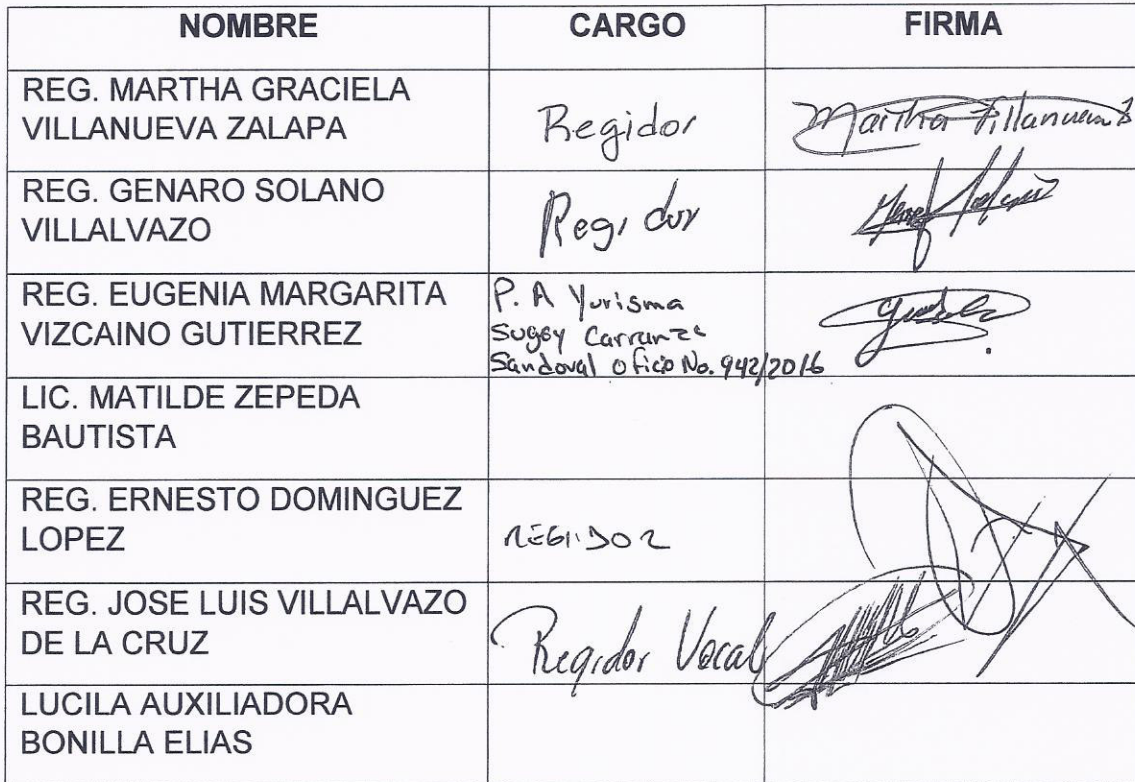 NOMBRE CARGO FIRMA
REG. MARTHA GRACIELA
VILLANUEVA ZALAPA Regidor Martha Villanueva Z
REG. GENARO SOLANO
VILLALVAZO Regidor
REG. EUGENIA MARGARITA
VIZCAINO GUTIERREZ
P. A Yurisma
Sugey Carranza
Sandoval Oficio No. 942/2016
LIC. MATILDE ZEPEDA
BAUTISTA
REG. ERNESTO DOMINGUEZ
LOPEZ REGIDOR
REG. JOSE LUIS VILLALVAZO
DE LA CRUZ Regidor Vocal
LUCILA AUXILIADORA
BONILLA ELIAS